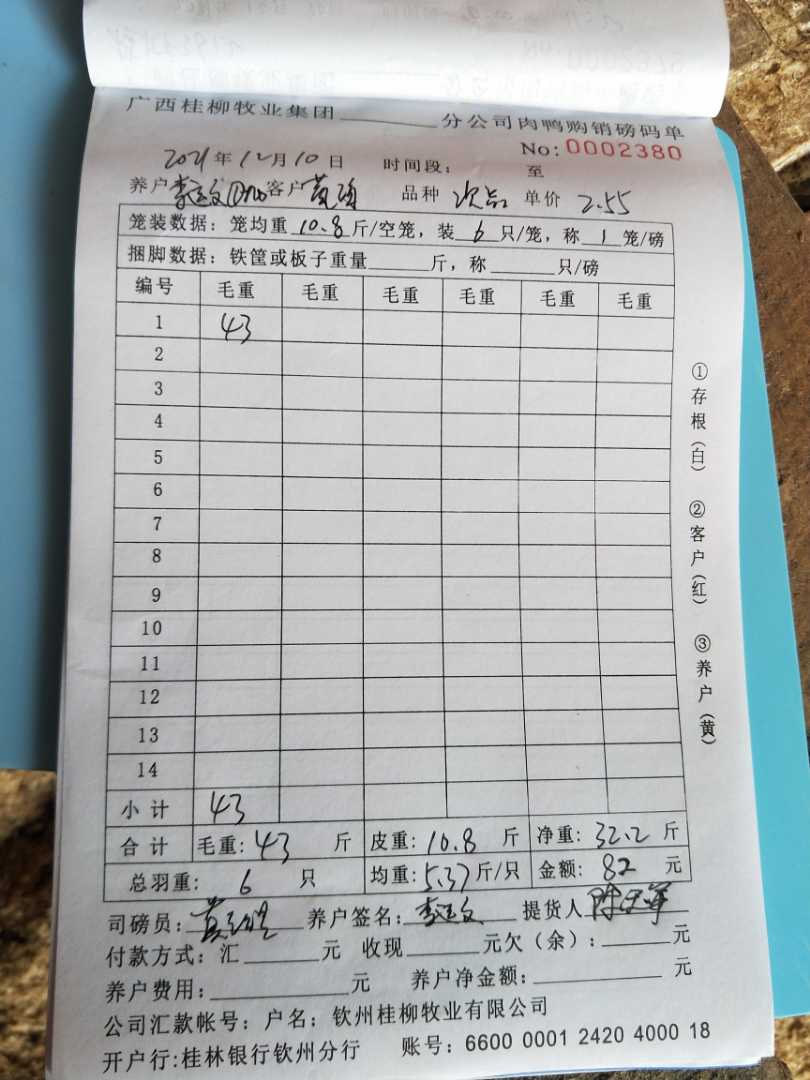 广西桂柳牧业集团______分公司肉鸭购销磅码单
No: 0002380
2021年12月10日 时间段: 至
养户 客户 品种 次品 单价 2.55
笼装数据: 笼均重 10.8 斤/空笼, 装 6 只/笼, 称 1 笼/磅
捆脚数据: 铁筐或板子重量______斤, 称______只/磅
编号 毛重 毛重 毛重 毛重 毛重 毛重
1 43
2
3
4
5
6
7
8
9
10
11
12
13
14
小计 43
合计 毛重: 43 斤 皮重: 10.8 斤 净重: 32.2 斤
总羽重: 6 只 均重: 5.37 斤/只 金额: 82 元
司磅员: 养户签名: 提货人
付款方式: 汇______元 收现______元欠(余): ______元
养户费用: ______元 养户净金额: ______元
公司汇款帐号: 户名: 钦州桂柳牧业有限公司
开户行:桂林银行钦州分行 账号: 6600 0001 2420 4000 18
①存根(白) ②客户(红) ③养户(黄)